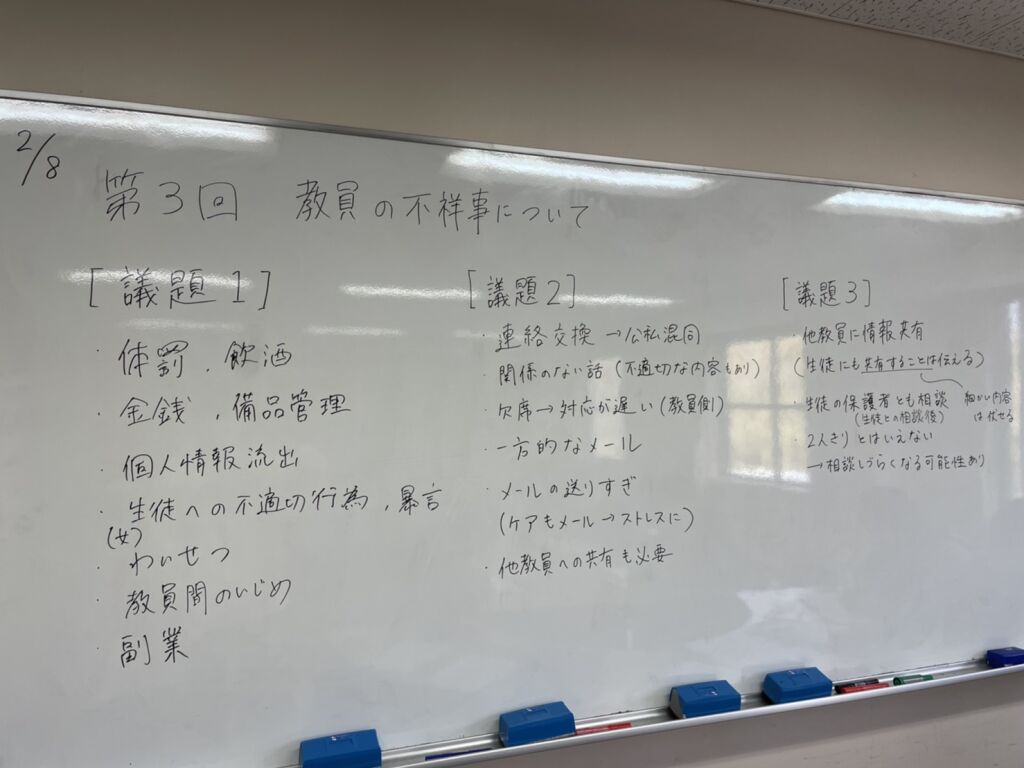 2/8
第3回 教員の不祥事について
[議題1]
・体罰、飲酒
・金銭、備品管理
・個人情報流出
・生徒への不適切行為、暴言
(女)
・わいせつ
・教員間のいじめ
・副業
[議題2]
・連絡交換→公私混同
・関係のない話(不適切な内容もあり)
・欠席→対応が遅い(教員側)
・一方的なメール
・メールの送りすぎ
(ケアもメール→ストレスに)
・他教員への共有も必要
[議題3]
・他教員に情報共有
(生徒にも共有することは伝える)
細かい内容は伏せる
・生徒の保護者とも相談
(生徒との相談後)
・2人きりとはいえない
→相談しづらくなる可能性あり